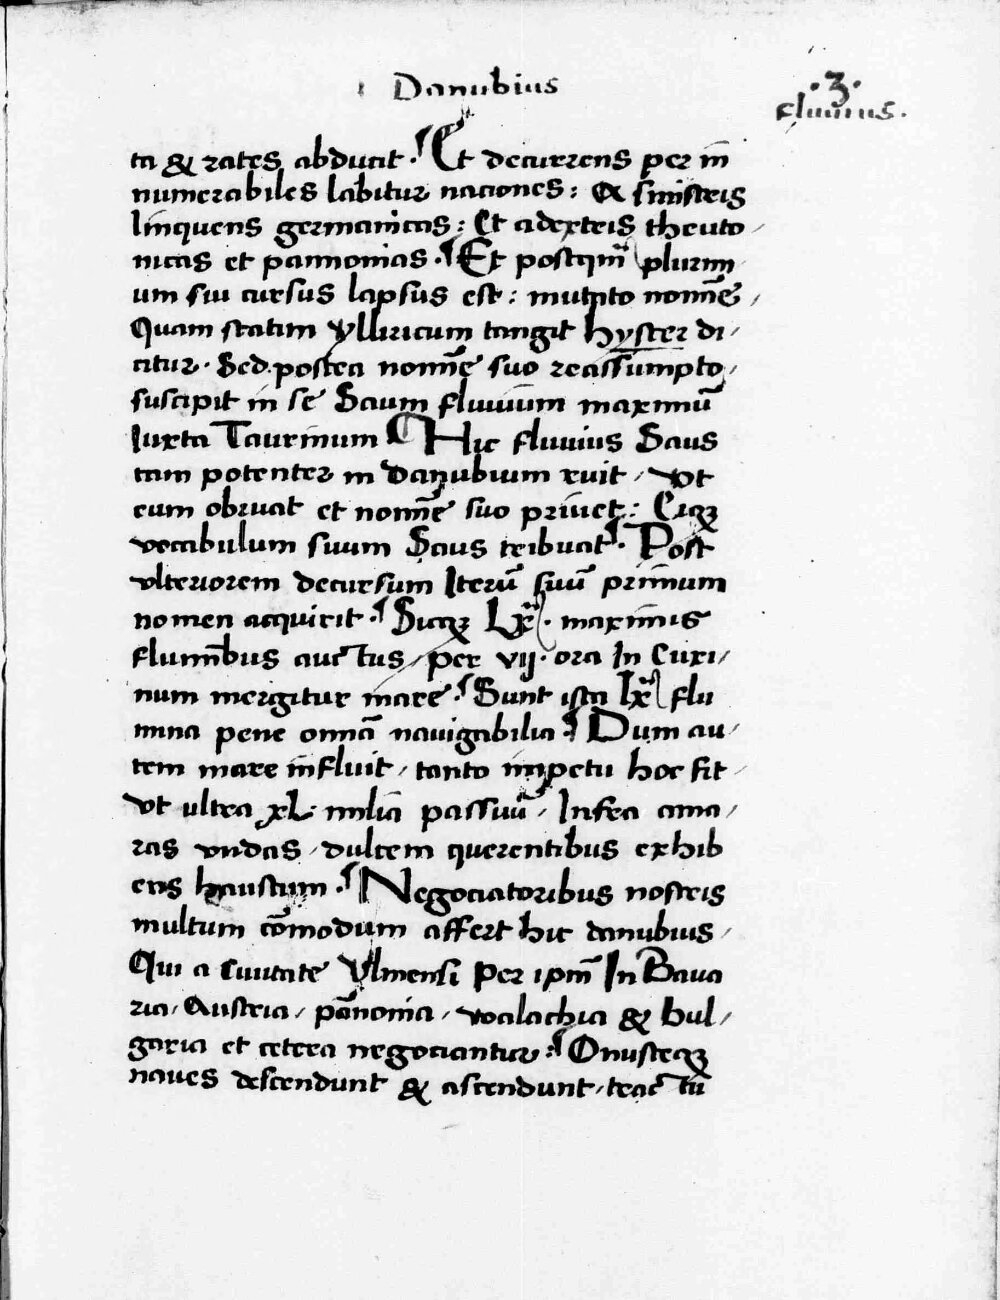 Danubius
.3.
fluuius.
ta & rates abducit. Et decurrens per in
numerabiles labitur naciones: & sinistris
linquens germanicas: Et a dextris theuto/
nicas et pannonias. Et postqm̄ plurim
um sui cursus lapsus est: mutato nomē/
Quam statim ylliricum tangit hyster di/
citur. Sed. postea nomē suo reassumpto/
suscipit in se Saum fluuium maximū
Iuxta Taurinum Hic fluuius Saus
tam potenter in danubium ruit / vt
eum obruat et nomē suo priuet: Eiqꝫ
vocabulum suum Saus tribuat. Post
vlteriorem decursum Iterū suū primum
nomen acquirit. Sicqꝫ Lx. maximis
flumībus auctus / per vij. ora In Euxi/
num mergitur mare. Sunt ista lx flu
mina pene omīa nauigabilia. Dum au/
tem mare influit / tanto impetu hoc fit /
vt ultra xl. milia passuū / Infra ama/
ras vndas / dulcem querentibus exhib
ens haustum. Negociatoribus nostris
multum cōmodum affert hic danubius /
Qui a ciuitate Vlmensi per ipm̄ In Baua
ria / Austria / pānonia / walachia & bul/
garia et cetera negociantur. Onusteqꝫ
naues descendunt & ascendunt / tractu